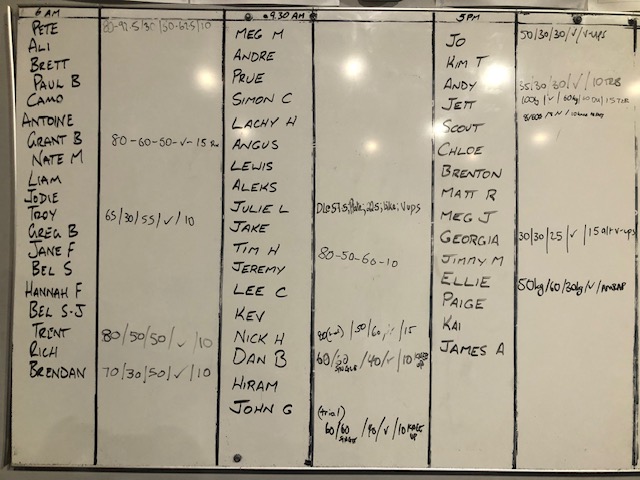 6 AM
PETE 80-92.5/30/50-62.5/10
ALI
BRETT
PAUL B
CAMO
ANTOINE
GRANT B 80-60-50-✓-15
NATE M
LIAM
JODIE
TROY 65/30/55/✓/10
GREG B
JANE F
BEL S
HANNAH F
BEL S-J
TRENT 80/50/50/✓/10
RICH
BRENDAN 70/30/50/✓/10
9.30 AM
MEG M
ANDRE
PRUE
SIMON C
LACHY H
ANGUS
LEWIS
ALEKS
JULIE L
JAKE
TIM H 80-50-60-10
JEREMY
LEE C
KEV
NICK H /50/60/ /15
DAN B 60/60 SINGLE /40/✓/10 KNEES UP
HIRAM
JOHN G (trial)
60/60 SINGLE /40/✓/10 KNEES UP
5PM
JO 50/30/30/✓/V-UPS
KIM T
ANDY 35/30/30/✓/10 T2B
JETT 100kg/✓/60kg/
SCOUT
CHLOE
BRENTON
MATT R
MEG J
GEORGIA 30/30/25/✓/15 alt v-ups
JIMMY M
ELLIE 50kg/60/30kg/✓/AMRAP
PAIGE
KAI
JAMES A